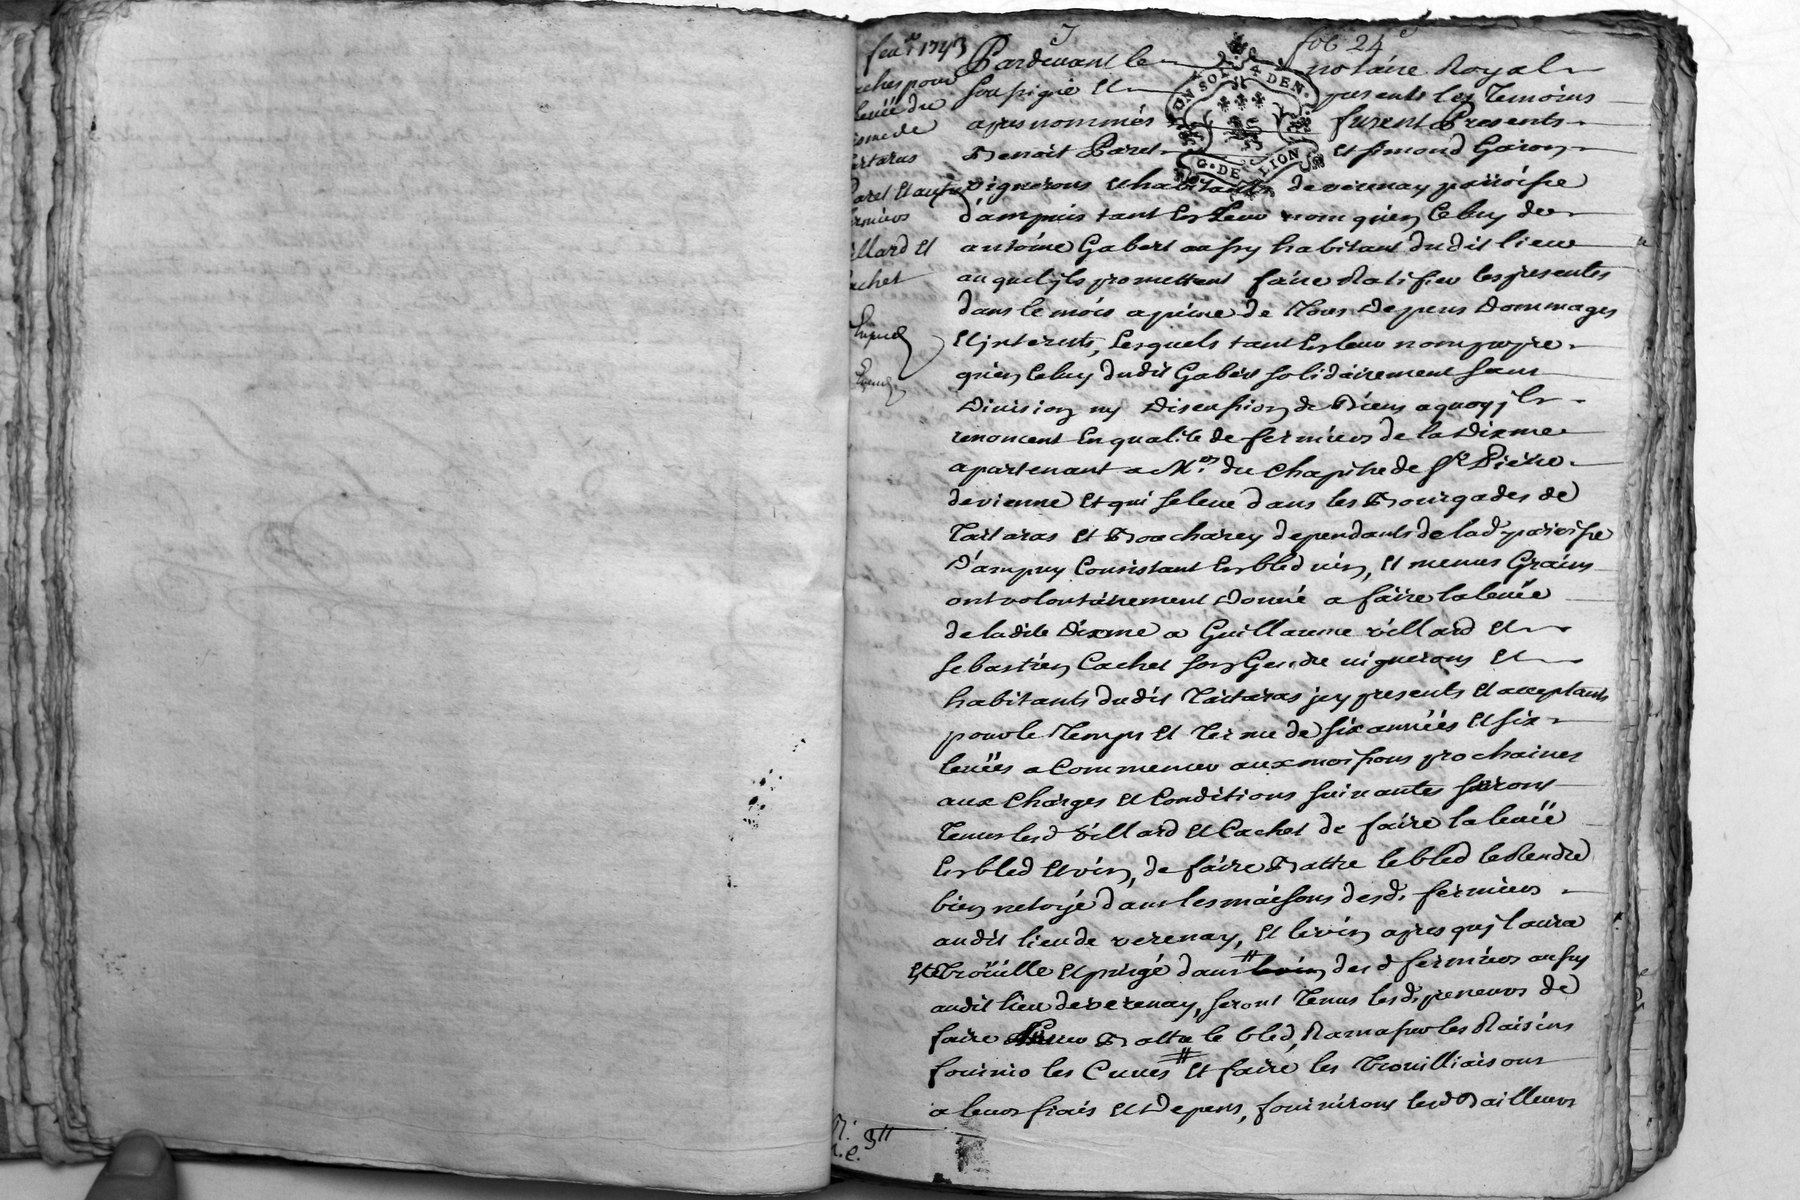 fol 24e
feur 1743
Pardevant le notaire Royal
soussigné et presents les temoins
apres nommés furent Presents
Benoit Paret et simond Garon
vignerons et habitants de verenay paroisse
d'ampuis tant en Leur nom qu'en celuy de
antoine Gabert aussy habitant dudit lieu
au quel jls promettent faire Ratifier les presentes
dans le mois a peine de Tous Depens Dommages
et jnterests, Lesquels tant en leur nom propre
qu'en celuy dudit Gabert solidairement sans
Division ny Discussion de Biens a quoy jls
renoncent En qualité de fermiers de la Dixme
apartenant a Mrs du Chapitre de St Pierre
de vienne et qui se leve dans les Bourgades de
Tartaras et Boucharey dependants de lad paroisse
D'ampuy Consistant En bled vin, et menus Grains
ont volontairement Donné a faire la levée
de ladite Dixme a Guillaume villard et
sebastien Cachet son Gendre vignerons et
habitants dudit Tartaras jcy presents et acceptants
pour le Temps et Terme de six années et six
levées a Commencer aux moissons prochaines
aux Charges et Conditions suivantes seront
Tenus lesd villard et Cachet de faire la levée
En bled et vin, de faire Battre le bled le Rendre
bien netoyé dans les maisons desd. fermiers
audit lieu de verenay, et le vin apres qu'jl aura
Esté Troüille et purgé dans desd fermiers aussy
audit lieu de verenay, seront Tenus lesd. preneurs de
faire Battre le bled, Ramasser les Raisins
fournir les Cuves et faire les Trouilliaisons
a leurs frais et Depens, fourniront lesd Bailleurs
levée du
Tartaras
Paret et autres
fermiers
villard et
Cachet